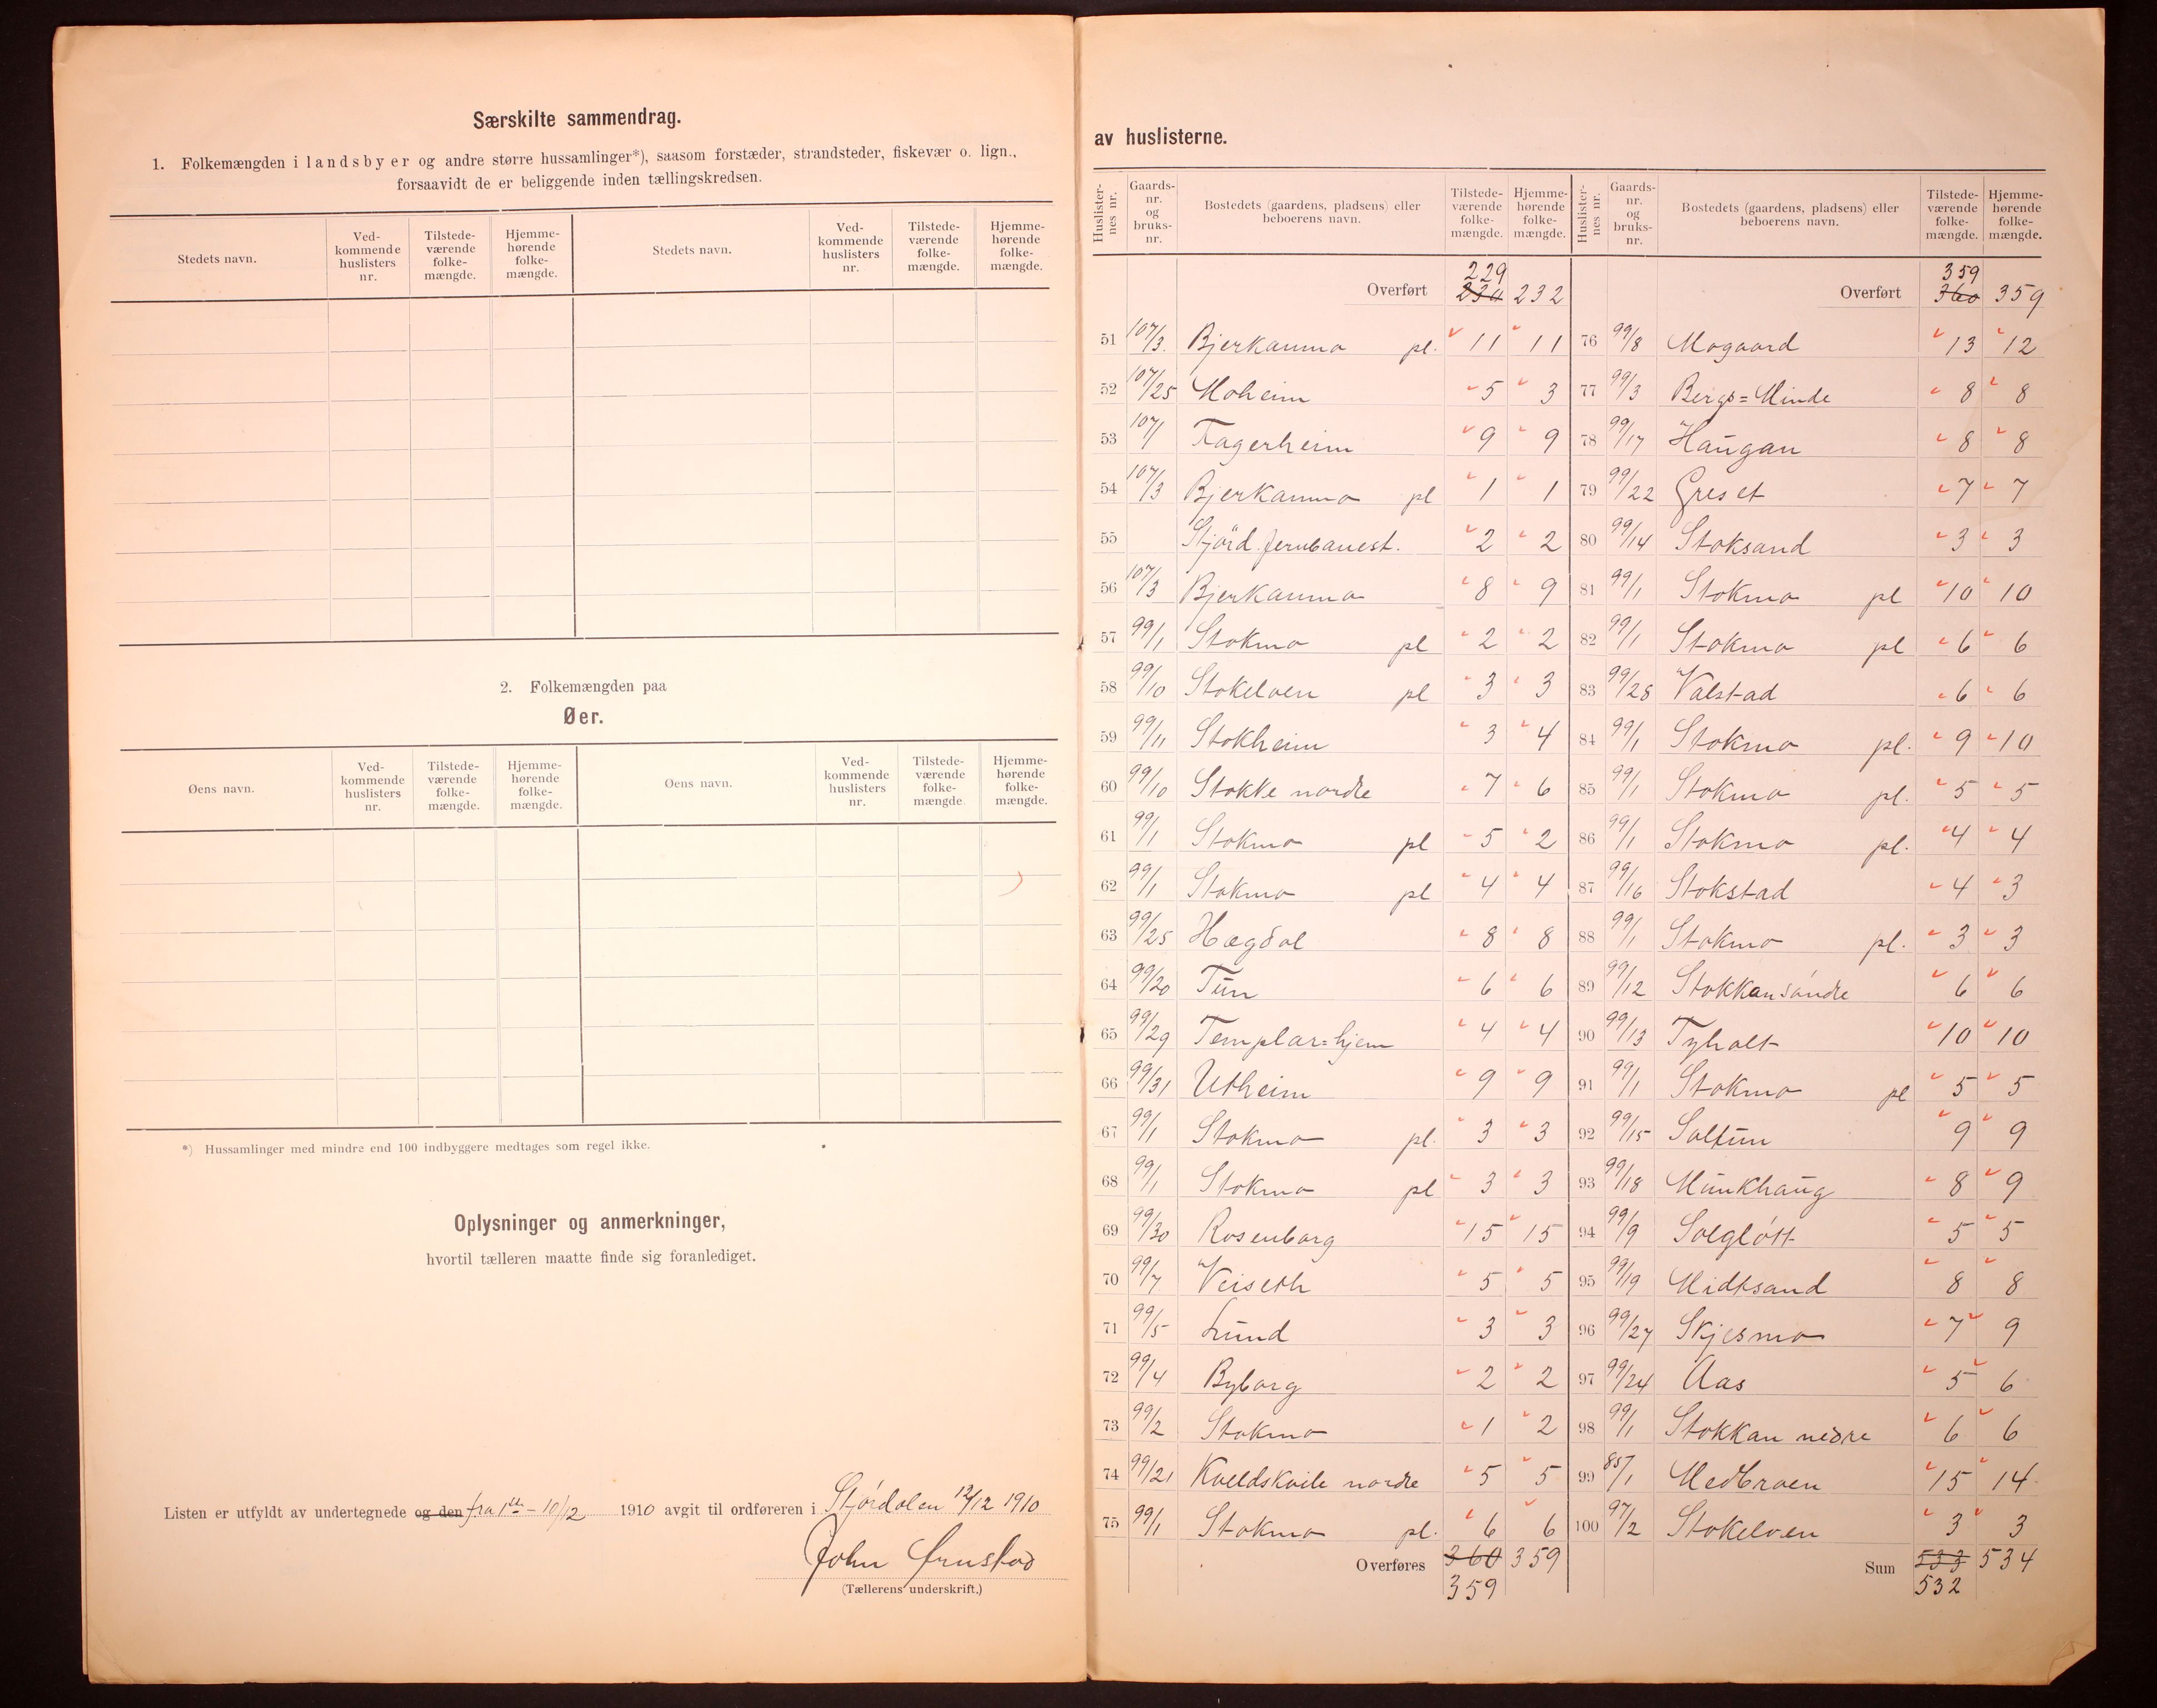 Særskilte sammendrag.
1. Folkemængden i landsbyer og andre større hussamlinger*), saasom forstæder, strandsteder, fiskevær o. lign.,
forsaavidt de er beliggende inden tællingskredsen.
Stedets navn. Ved-kommende huslisters nr. Tilstede-værende folke-mængde. Hjemme-hørende folke-mængde. Stedets navn. Ved-kommende huslisters nr. Tilstede-værende folke-mængde. Hjemme-hørende folke-mængde.
2. Folkemængden paa
Øer.
Øens navn. Ved-kommende huslisters nr. Tilstede-værende folke-mængde. Hjemme-hørende folke-mængde. Øens navn. Ved-kommende huslisters nr. Tilstede-værende folke-mængde Hjemme-hørende folke-mængde.
*) Hussamlinger med mindre end 100 indbyggere medtages som regel ikke.
Oplysninger og anmerkninger,
hvortil tælleren maatte finde sig foranlediget.
Listen er utfyldt av undertegnede og den fra 1ste - 10/12 1910 avgit til ordføreren i Stjørdalen 12/12 1910
John
(Tællerens underskrift.)
av huslisterne.
Huslister-nes nr. Gaards-nr. og bruks-nr. Bostedets (gaardens, pladsens) eller beboerens navn. Tilstede-værende folke-mængde. Hjemme-hørende folke-mængde.
Overført 229 230 232
51 107/3. Bjerkanmo pl. 11 11
52 107/25 Moheim 5 3
53 107/1 Fagerheim 9 9
54 107/3 Bjerkanmo pl 1 1
55 Stjörd. jernbanest. 2 2
56 107/3 Bjerkanmo 8 9
57 99/1 Stokmo pl 2 2
58 99/10 Stokeloen pl 3 3
59 99/11 Stokheim 3 4
60 99/10 Stokke nordre 7 6
61 99/1 Stokmo pl 5 2
62 99/1 Stokmo pl 4 4
63 99/25 Hægdal 8 8
64 99/20 Tun 6 6
65 99/29 Templar=hjem 4 4
66 99/31 Utheim 9 9
67 99/1 Stokmo pl. 3 3
68 99/1 Stokmo pl 3 3
69 99/30 Rosenborg 15 15
70 99/7 Veiseth 5 5
71 99/5 Lund 3 3
72 99/4 Byborg 2 2
73 99/2 Stokmo 1 2
74 99/21 Kveldskvile nordre 5 5
75 99/1 Stokmo pl. 6 6
Overføres 360 359
359
Huslister-nes nr. Gaards-nr. og bruks-nr. Bostedets (gaardens, pladsens) eller beboerens navn. Tilstede-værende folke-mængde. Hjemme-hørende folke-mængde.
Overført 359 360 359
76 99/8 Mogaard 13 12
77 99/3 Bergs=Minde 8 8
78 99/17 Haugan 8 8
79 99/22 Greset 7 7
80 99/14 Stoksand 3 3
81 99/1 Stokmo pl 10 10
82 99/1 Stokmo pl 6 6
83 99/28 Valstad 6 6
84 99/1 Stokmo pl. 9 10
85 99/1 Stokmo pl. 5 5
86 99/1 Stokmo pl. 4 4
87 99/16 Stokstad 4 3
88 99/1 Stokmo pl. 3 3
89 99/12 Stokkan söndre 6 6
90 99/13 Tyholt 10 10
91 99/1 Stokmo pl 5 5
92 99/15 Soltun 9 9
93 99/18 Munkhaug 8 9
94 99/9 Solgløtt 5 5
95 99/19 Midtsand 8 8
96 99/27 Skjesmo 7 9
97 99/24 Aas 5 6
98 99/1 Stokkan nedre 6 6
99 85/1 Medbroen 15 14
100 97/2 Stokeloen 3 3
Sum 533 534
532